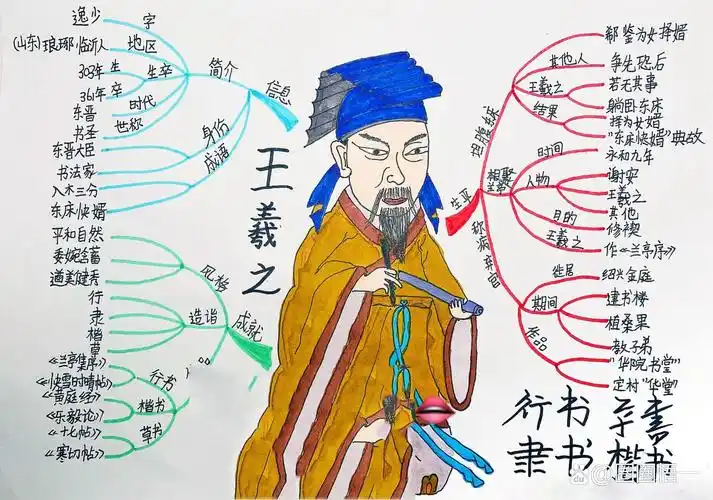 王羲之
信息
简介
字
逸少
地区
(山东)琅琊·临沂人
生卒
303年 生
361年 卒
时代
东晋
世称
书圣
身份
东晋大臣
书法家
成语
入木三分
东床快婿
成就
风格
平和自然
委婉含蓄
遒美健秀
造诣
行
隶
楷
草
品
行书
《兰亭集序》
《快雪时晴帖》
楷书
《黄庭经》
《乐毅论》
草书
《十七帖》
《寒切帖》
生平
坦腹东床
郗鉴为女择婿
其他人
争先恐后
王羲之
若无其事
躺卧东床
结果
择为女婿
"东床快婿"典故
相聚兰亭
时间
永和九年
人物
谢安
王羲之
其他
目的
修禊
王羲之
作《兰亭序》
称病弃官
迁居
绍兴金庭
期间
建书楼
植桑果
教子弟
作品
"华院书堂"
定村"华堂"
行书
隶书 楷书